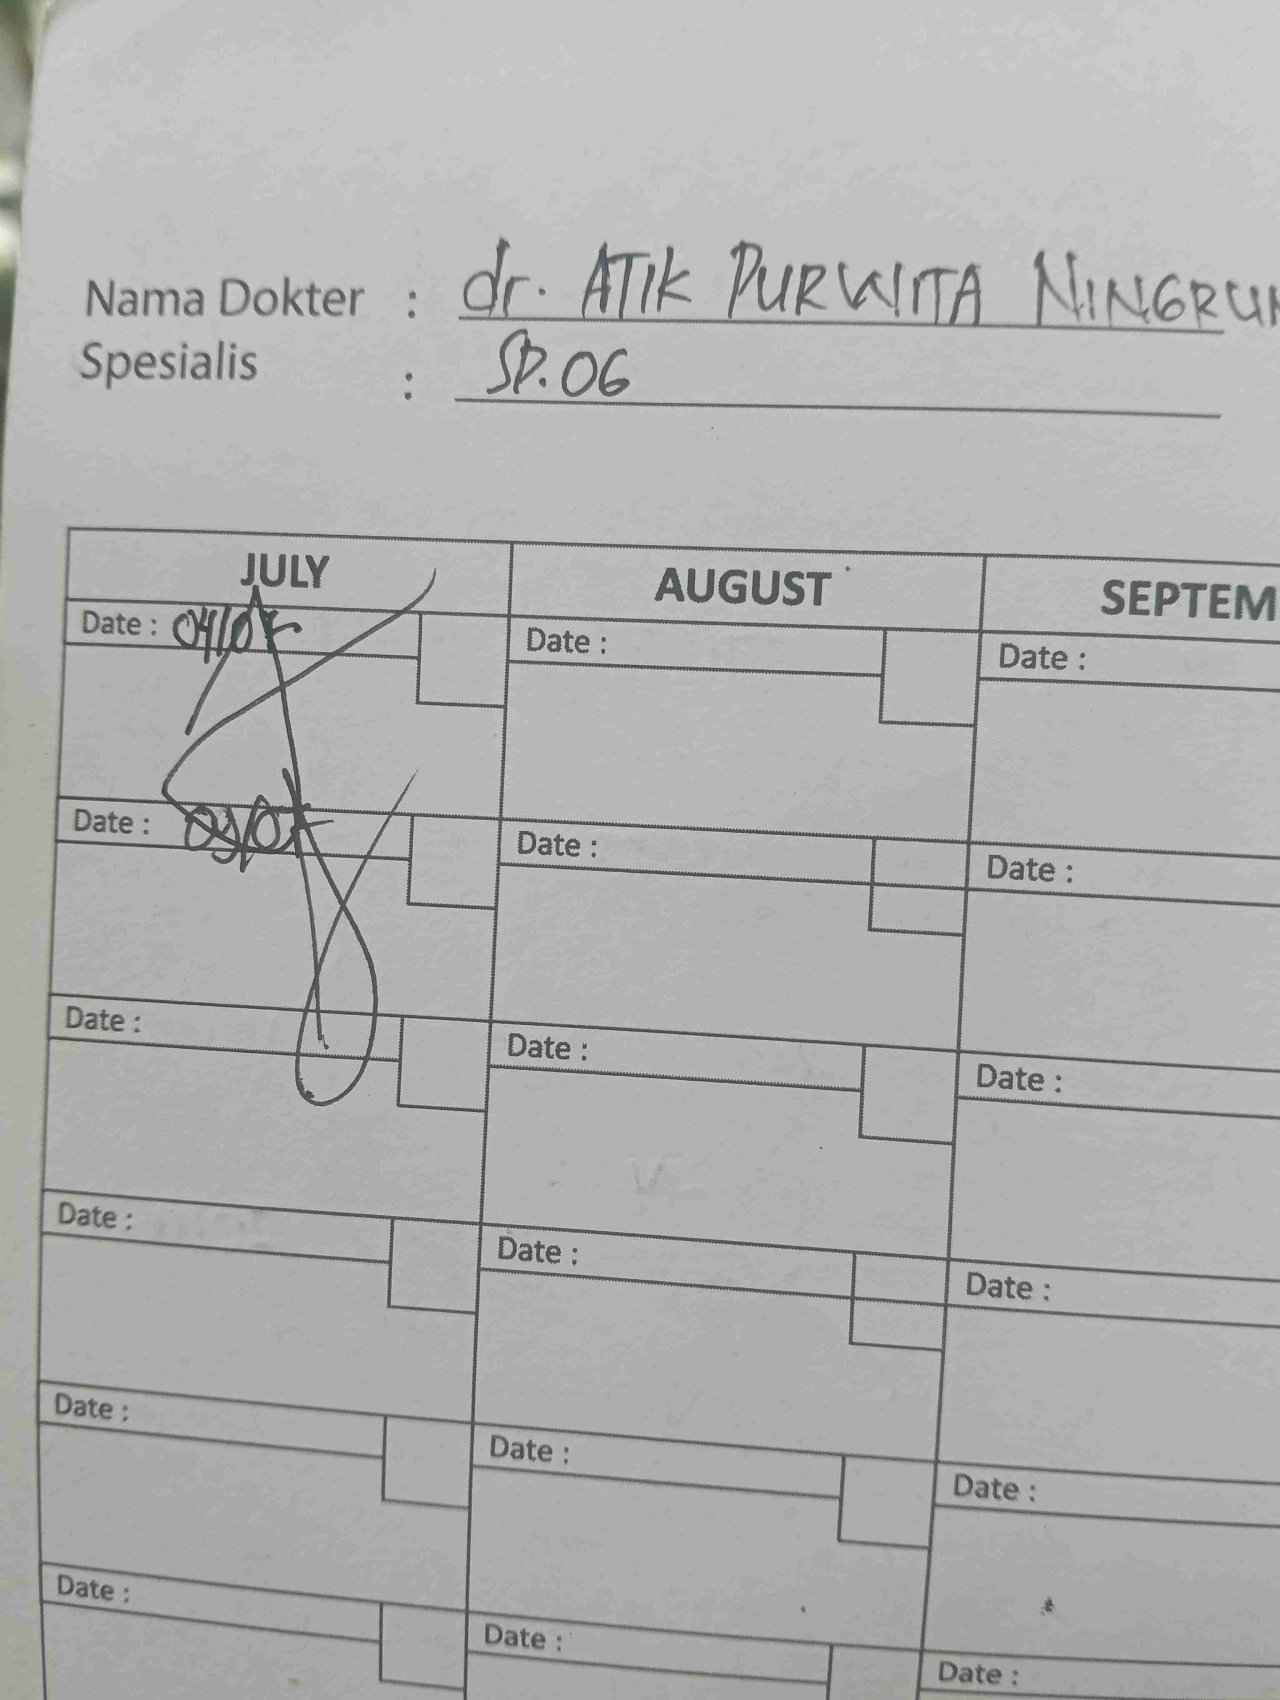 Nama Dokter : dr. ATIK PURWITA NINGRUM
Spesialis : SP.OG
JULY AUGUST SEPTEM
Date : 04/07 Date : Date :
Date : 09/07 Date : Date :
Date : Date : Date :
Date : Date : Date :
Date : Date : Date :
Date : Date : Date :